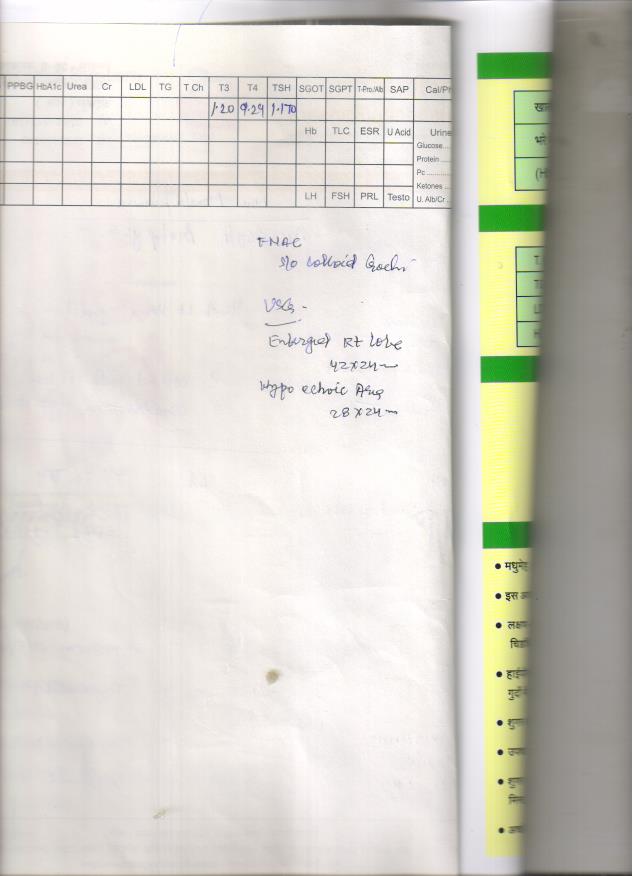 PPBG HbA1c Urea Cr LDL TG T Ch T3 T4 TSH SGOT SGPT T-Pro./Alb SAP Cal/Ph
1.20 9.29 1.170
Hb TLC ESR U Acid Urine
Glucose....
Protein....
Pc............
Ketones...
LH FSH PRL Testo U. Alb/Cr.
FNAC
s/o Colloid
USG -
Enlarged Rt lobe
42x24
Hypo echoic Area
28x24
खा
भरे
(H
T.
L
H
• मधुमेह
• इस
• लक्षण
चिड़चि
• हाई
गुर्दों
• शुगर
• उपच
• शुग